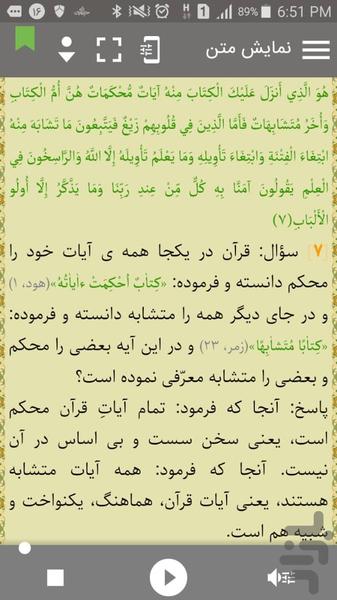 ۱۶ 1 89% 6:51 PM
نمایش متن
هُوَ الَّذِي أَنزَلَ عَلَيْكَ الْكِتَابَ مِنْهُ آيَاتٌ مُّحْكَمَاتٌ هُنَّ أُمُّ الْكِتَابِ
وَأُخَرُ مُتَشَابِهَاتٌ فَأَمَّا الَّذِينَ فِي قُلُوبِهِمْ زَيْغٌ فَيَتَّبِعُونَ مَا تَشَابَهَ مِنْهُ
ابْتِغَاءَ الْفِتْنَةِ وَابْتِغَاءَ تَأْوِيلِهِ وَمَا يَعْلَمُ تَأْوِيلَهُ إِلَّا اللَّهُ وَالرَّاسِخُونَ فِي
الْعِلْمِ يَقُولُونَ آمَنَّا بِهِ كُلٌّ مِّنْ عِندِ رَبِّنَا وَمَا يَذَّكَّرُ إِلَّا أُولُو
الْأَلْبَابِ(۷)
[۷] سؤال: قرآن در یکجا همه ی آیات خود را
محکم دانسته و فرموده: «كِتابٌ اُحْكِمَتْ ءاياتُهُ»(هود، ۱)
و در جای دیگر همه را متشابه دانسته و فرموده:
«كِتابًا مُتَشابِهًا»(زمر، ۲۳) و در این آیه بعضی را محکم
و بعضی را متشابه معرّفی نموده است؟
پاسخ: آنجا که فرمود: تمام آیاتِ قرآن محکم
است، یعنی سخن سست و بی اساس در آن
نیست. آنجا که فرمود: همه آیات متشابه
هستند، یعنی آیات قرآن، هماهنگ، یکنواخت و
شبیه هم است.
بازار